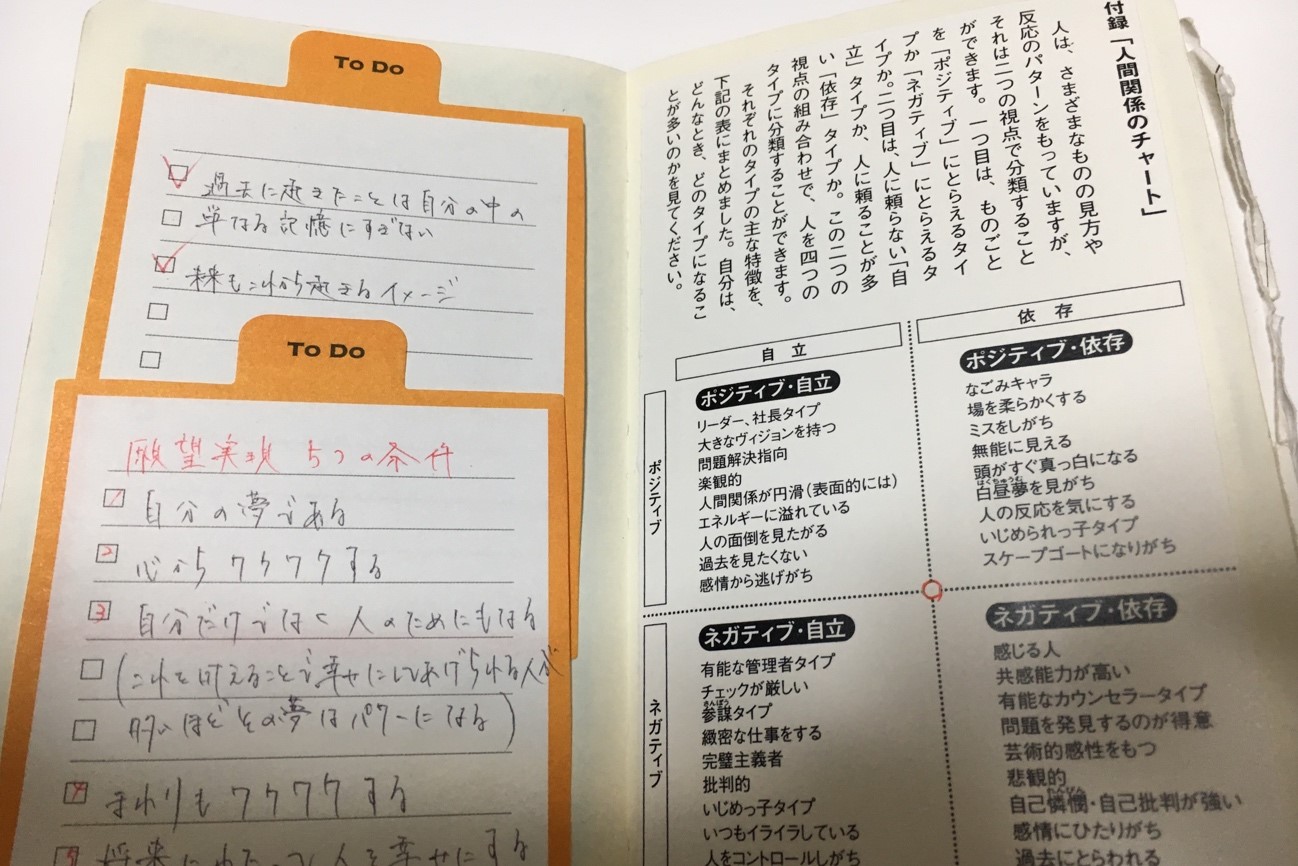 To Do
過去に起きたことは自分の中の
単なる記憶にすぎない
未来もこれから起きるイメージ
To Do
願望実現 5つの条件
1 自分の夢である
2 心からワクワクする
3 自分だけではなく人のためにもなる
(これを叶えることで幸せにしてあげられる人が
多いほどその夢はパワーになる)
4 まわりもワクワクする
5 将来にわたって人を幸せにする
付録「人間関係のチャート」
人は、さまざまなものの見方や
反応のパターンをもっていますが、
それは二つの視点で分類すること
ができます。一つ目は、ものごと
を「ポジティブ」にとらえるタイ
プか「ネガティブ」にとらえるタ
イプか。二つ目は、人に頼らない「自
立」タイプか、人に頼ることが多
い「依存」タイプか。この二つの
視点の組み合わせで、人を四つの
タイプに分類することができます。
それぞれのタイプの主な特徴を、
下記の表にまとめました。自分は、
どんなとき、どのタイプになるこ
とが多いのかを見てください。
自立
依存
ポジティブ
ポジティブ・自立
リーダー、社長タイプ
大きなヴィジョンを持つ
問題解決指向
楽観的
人間関係が円滑(表面的には)
エネルギーに溢れている
人の面倒を見たがる
過去を見たくない
感情から逃げがち
ポジティブ・依存
なごみキャラ
場を柔らかくする
ミスをしがち
無能に見える
頭がすぐ真っ白になる
はくちゅうむ
白昼夢を見がち
人の反応を気にする
いじめられっ子タイプ
スケープゴートになりがち
ネガティブ
ネガティブ・自立
有能な管理者タイプ
チェックが厳しい
さんぼう
参謀タイプ
緻密な仕事をする
完璧主義者
批判的
いじめっ子タイプ
いつもイライラしている
人をコントロールしがち
ネガティブ・依存
感じる人
共感能力が高い
有能なカウンセラータイプ
問題を発見するのが得意
芸術的感性をもつ
悲観的
れんびん
自己憐憫・自己批判が強い
感情にひたりがち
過去にとらわれる